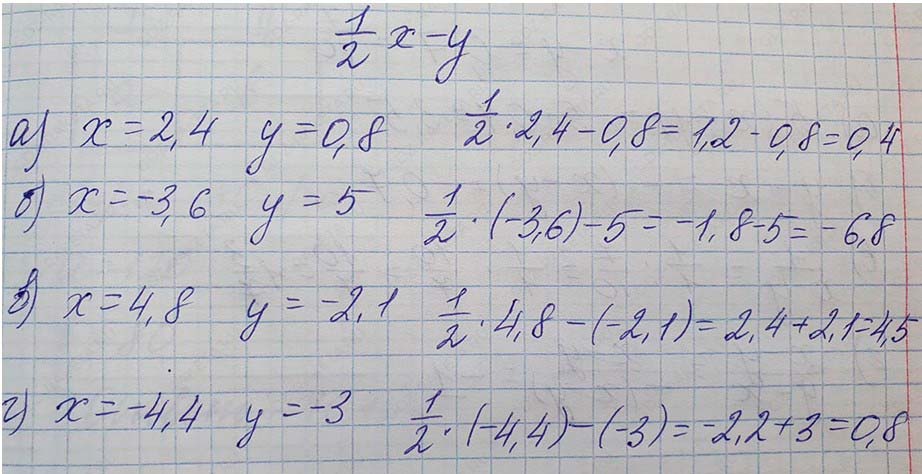 1/2 x - y
а) x = 2,4 y = 0,8 1/2 · 2,4 - 0,8 = 1,2 - 0,8 = 0,4
б) x = -3,6 y = 5 1/2 · (-3,6) - 5 = -1,8 - 5 = -6,8
в) x = 4,8 y = -2,1 1/2 · 4,8 - (-2,1) = 2,4 + 2,1 = 4,5
г) x = -4,4 y = -3 1/2 · (-4,4) - (-3) = -2,2 + 3 = 0,8